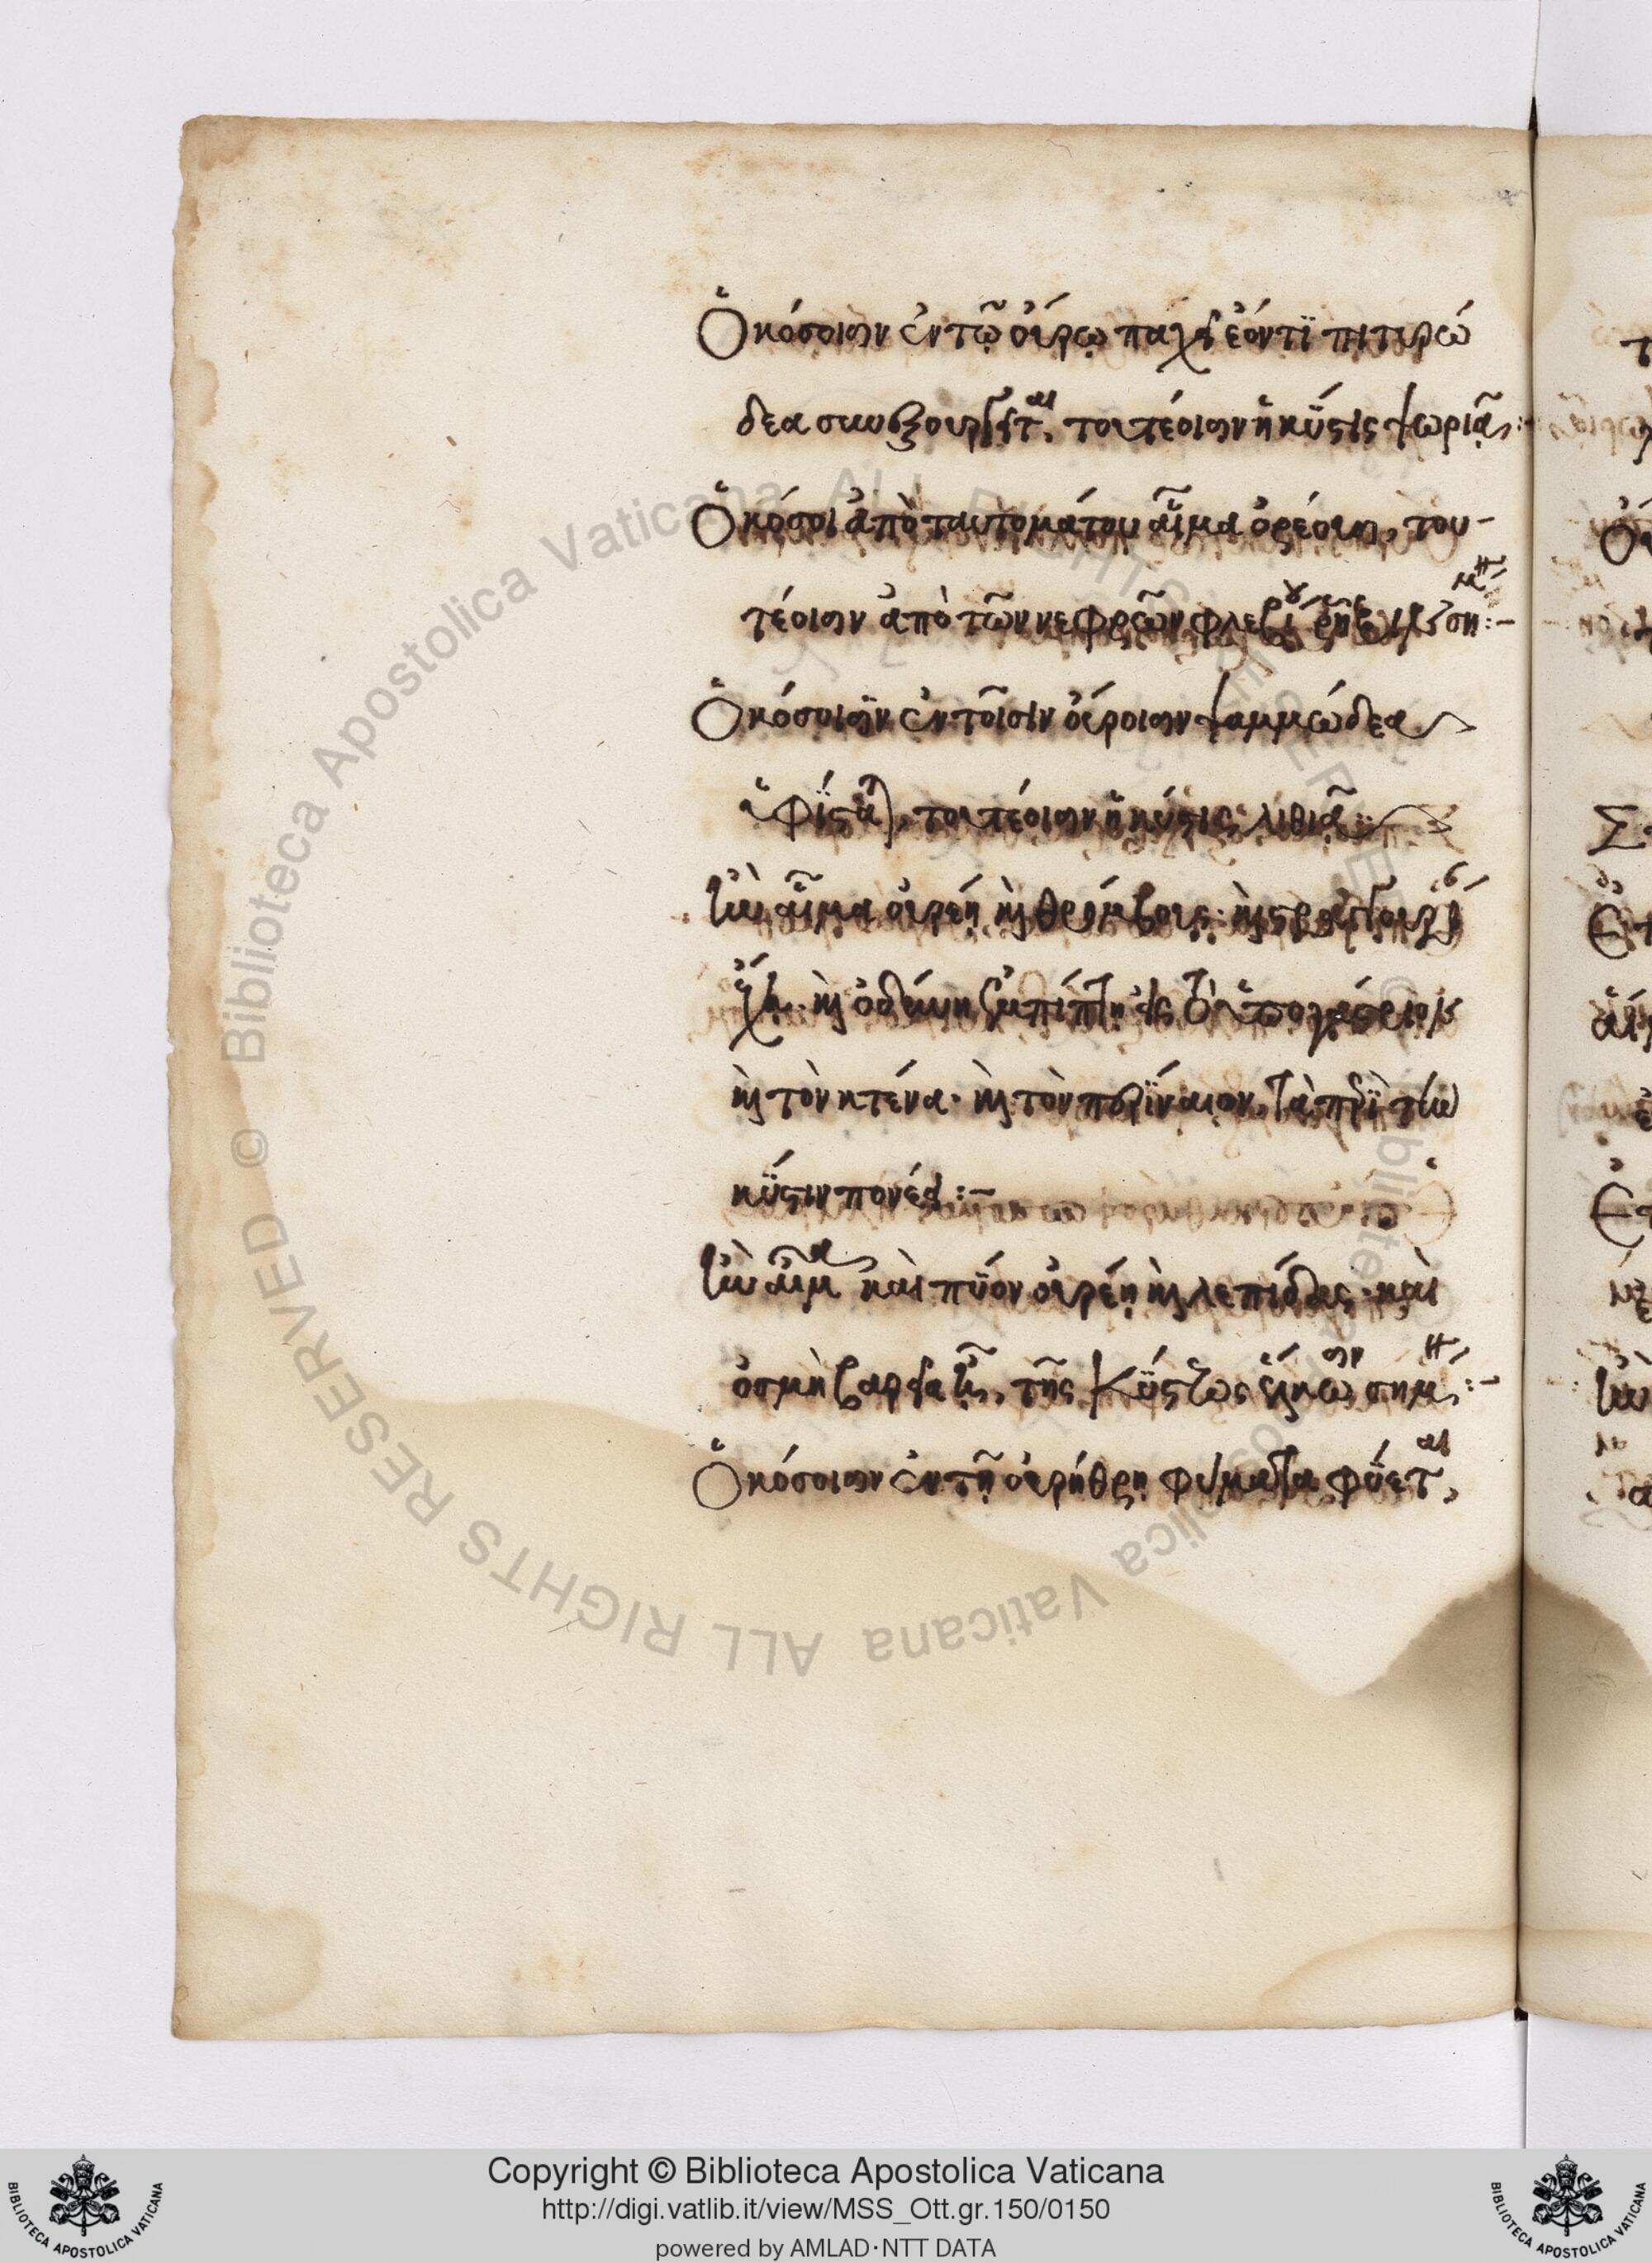 Ὁκόσοισιν ἐν τῷ οὔρῳ παχεῖ ἐόντϊ πιτυρώ
δεα συνεξουρέεται, τουτέοισιν ἡ κύστις ψωριᾷ:
Ὁκόσοι ἀπὸ ταυτομάτου αἷμα οὐρέουσιν, του-
τέοισιν ἀπὸ τῶν νεφρῶν φλεβίου ῥῆξιν
Ὁκόσοισιν ἐν τοῖσιν οὔροισιν ψαμμώδεα
ὑφίσταται, τουτέοισιν ἡ κύστις λιθιᾷ:
ἢν αἷμα οὐρέῃ καὶ θρόμβους· καὶ στραγγουρίην
ἔχῃ· καὶ ὀδύνη ἐμπίπτῃ εἰς τὸ ὑπογάστριον
καὶ τὸν κτένα· καὶ τὸν περίναιον, τὰ περὶ τὴν
κύστιν πονέει:-
ἢν αἷμα καὶ πύον οὐρέῃ καὶ λεπίδας· καὶ
ὀσμὴ βαρεῖα ᾖ, τῆς κύστιος ἕλκωσιν σημαίνει:-
Ὁκόσοισιν ἐν τῇ οὐρήθρῃ φύματα φύεται,
Copyright © Biblioteca Apostolica Vaticana
http://digi.vatlib.it/view/MSS_Ott.gr.150/0150
powered by AMLAD·NTT DATA
BIBLIOTECA APOSTOLICA VATICANA
BIBLIOTECA APOSTOLICA VATICANA
© Biblioteca Apostolica Vaticana ALL RIGHTS RESERVED
© Biblioteca Apostolica Vaticana ALL RIGHTS RESERVED